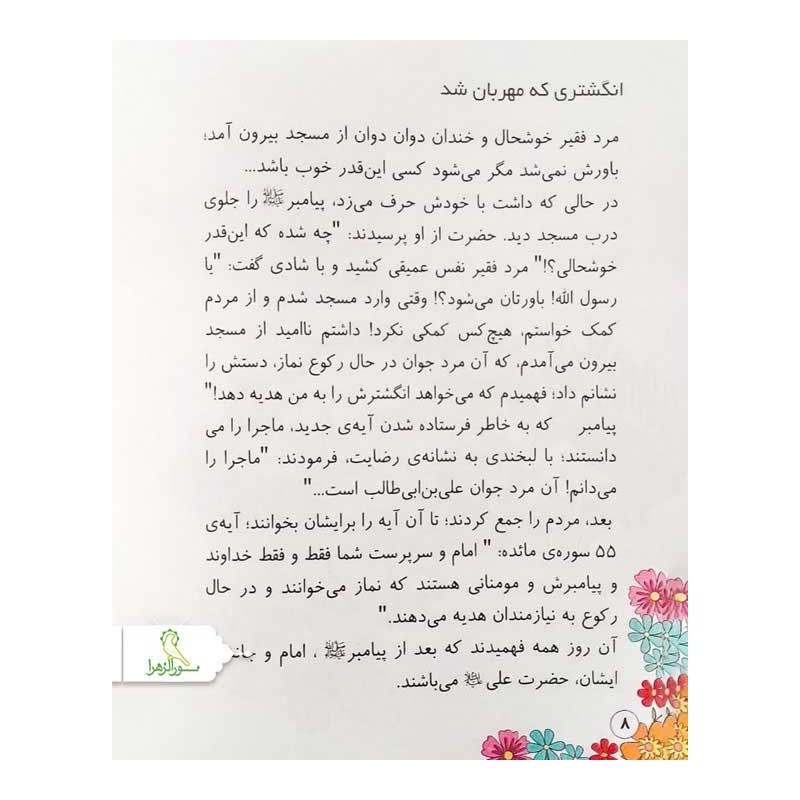 انگشتری که مهربان شد
مرد فقیر خوشحال و خندان دوان دوان از مسجد بیرون آمد؛
باورش نمی‌شد مگر می‌شود کسی این‌قدر خوب باشد...
در حالی که داشت با خودش حرف می‌زد، پیامبر ﷺ را جلوی
درب مسجد دید. حضرت از او پرسیدند: "چه شده که این‌قدر
خوشحالی؟!" مرد فقیر نفس عمیقی کشید و با شادی گفت: "یا
رسول الله! باورتان می‌شود؟! وقتی وارد مسجد شدم و از مردم
کمک خواستم، هیچ‌کس کمکی نکرد! داشتم ناامید از مسجد
بیرون می‌آمدم، که آن مرد جوان در حال رکوع نماز، دستش را
نشانم داد؛ فهمیدم که می‌خواهد انگشترش را به من هدیه دهد!"
پیامبر که به خاطر فرستاده شدن آیه‌ی جدید، ماجرا را می
دانستند؛ با لبخندی به نشانه‌ی رضایت، فرمودند: "ماجرا را
می‌دانم! آن مرد جوان علی‌بن‌ابی‌طالب است..."
بعد، مردم را جمع کردند؛ تا آن آیه را برایشان بخوانند؛ آیه‌ی
۵۵ سوره‌ی مائده: " امام و سرپرست شما فقط و فقط خداوند
و پیامبرش و مومنانی هستند که نماز می‌خوانند و در حال
رکوع به نیازمندان هدیه می‌دهند."
آن روز همه فهمیدند که بعد از پیامبر ﷺ ، امام و
ایشان، حضرت علی می‌باشند.
۸